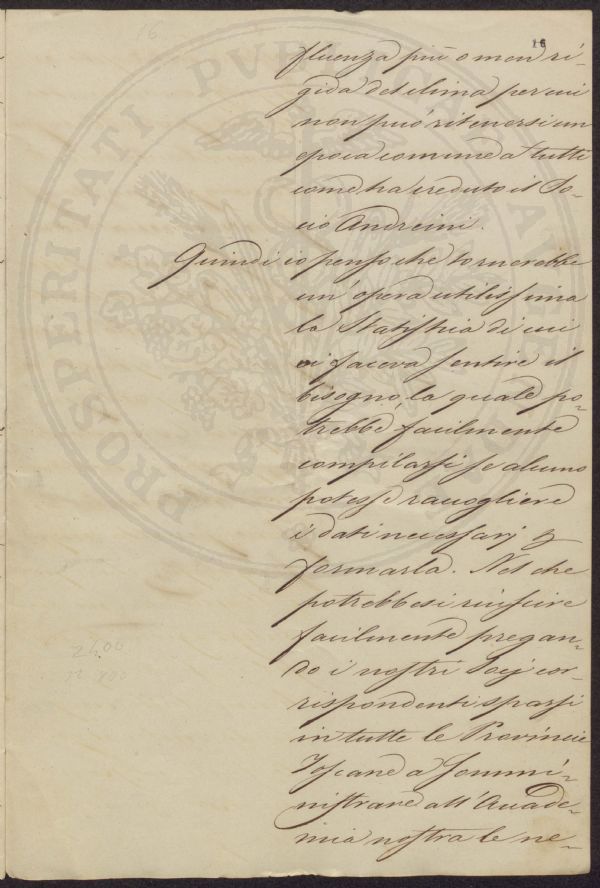 16
fluenza più o men ri-
gida del clima per cui
non può ritenersi un
epoca comune a tutti
come ha creduto il So-
cio Andreini.
Quindi io penso che tornerebbe
un' opera utilissima
la Statistica di cui
vi faceva sentire il
bisogno, la quale po-
trebbe facilmente
compilarsi se alcuno
potesse raccogliere
i dati necessarj p
formarla. Nel che
potrebbesi riuscire
facilmente pregan-
do i nostri Socj cor-
rispondenti sparsi
in tutte le Provincie
Toscane a sommi-
nistrare all' Accade-
mia nostra le ne-
PROSPERITATI PVBLICAE AVGENDAE
16
2400